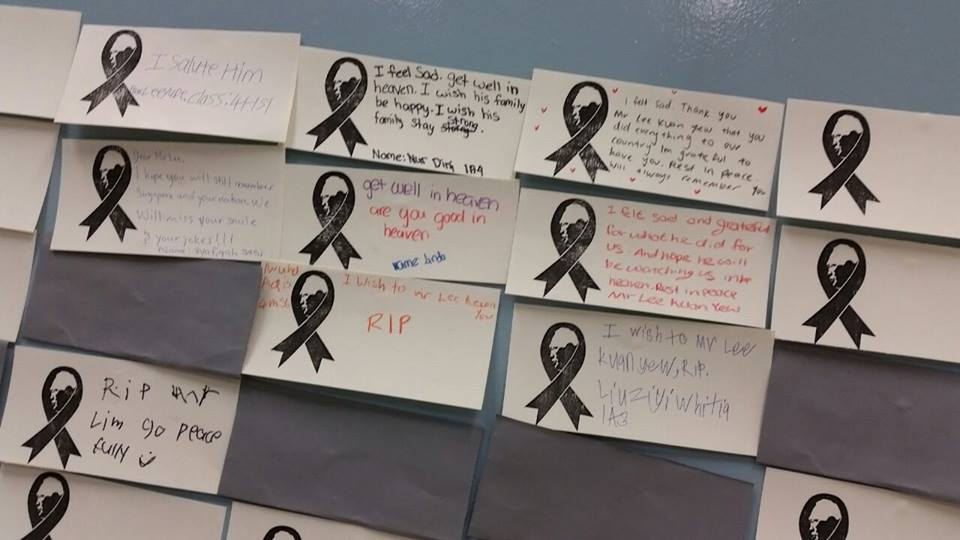 I Salute Him
class:4H1S1
I feel Sad. get well in
heaven. I wish his family
be happy. I wish his
family stay strong.
Name: Nur Dini 1A4
I felt sad. Thank you
Mr Lee Kuan Yew that you
did everything to our
country Im grateful to
have you. Rest in peace.
Will always remember you
I hope you will still remember
Singapore and your nation. We
Will miss your smile
& your jokes!!!
get well in heaven
are you good in
heaven
Name Linda
I felt sad and grateful
for what he did for
us. And hope he will
be watching us in the
heaven. Rest in peace
Mr Lee Kuan Yew
I wish to mr Lee kuan
You
RIP
I wish to Mr Lee
kuan yew, RIP.
1A3
R.i P
Lim go peace
fully